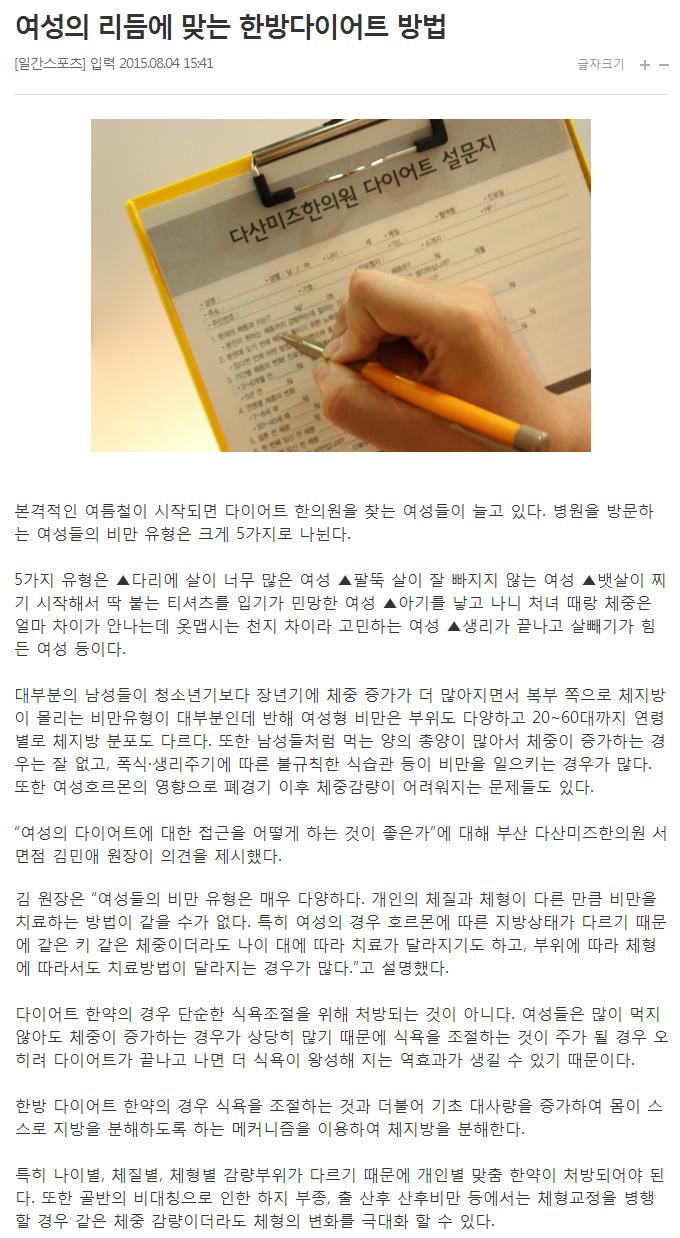 여성의 리듬에 맞는 한방다이어트 방법
[일간스포츠] 입력 2015.08.04 15:41
글자크기 + −
다산미즈한의원 다이어트 설문지
본격적인 여름철이 시작되면 다이어트 한의원을 찾는 여성들이 늘고 있다. 병원을 방문하
는 여성들의 비만 유형은 크게 5가지로 나뉜다.
5가지 유형은 ▲다리에 살이 너무 많은 여성 ▲팔뚝 살이 잘 빠지지 않는 여성 ▲뱃살이 찌
기 시작해서 딱 붙는 티셔츠를 입기가 민망한 여성 ▲아기를 낳고 나니 처녀 때랑 체중은
얼마 차이가 안나는데 옷맵시는 천지 차이라 고민하는 여성 ▲생리가 끝나고 살빼기가 힘
든 여성 등이다.
대부분의 남성들이 청소년기보다 장년기에 체중 증가가 더 많아지면서 복부 쪽으로 체지방
이 몰리는 비만유형이 대부분인데 반해 여성형 비만은 부위도 다양하고 20~60대까지 연령
별로 체지방 분포도 다르다. 또한 남성들처럼 먹는 양의 총양이 많아서 체중이 증가하는 경
우는 잘 없고, 폭식·생리주기에 따른 불규칙한 식습관 등이 비만을 일으키는 경우가 많다.
또한 여성호르몬의 영향으로 폐경기 이후 체중감량이 어려워지는 문제들도 있다.
“여성의 다이어트에 대한 접근을 어떻게 하는 것이 좋은가”에 대해 부산 다산미즈한의원 서
면점 김민애 원장이 의견을 제시했다.
김 원장은 “여성들의 비만 유형은 매우 다양하다. 개인의 체질과 체형이 다른 만큼 비만을
치료하는 방법이 같을 수가 없다. 특히 여성의 경우 호르몬에 따른 지방상태가 다르기 때문
에 같은 키 같은 체중이더라도 나이 대에 따라 치료가 달라지기도 하고, 부위에 따라 체형
에 따라서도 치료방법이 달라지는 경우가 많다.”고 설명했다.
다이어트 한약의 경우 단순한 식욕조절을 위해 처방되는 것이 아니다. 여성들은 많이 먹지
않아도 체중이 증가하는 경우가 상당히 많기 때문에 식욕을 조절하는 것이 주가 될 경우 오
히려 다이어트가 끝나고 나면 더 식욕이 왕성해 지는 역효과가 생길 수 있기 때문이다.
한방 다이어트 한약의 경우 식욕을 조절하는 것과 더불어 기초 대사량을 증가하여 몸이 스
스로 지방을 분해하도록 하는 메커니즘을 이용하여 체지방을 분해한다.
특히 나이별, 체질별, 체형별 감량부위가 다르기 때문에 개인별 맞춤 한약이 처방되어야 된
다. 또한 골반의 비대칭으로 인한 하지 부종, 출 산후 산후비만 등에서는 체형교정을 병행
할 경우 같은 체중 감량이더라도 체형의 변화를 극대화 할 수 있다.